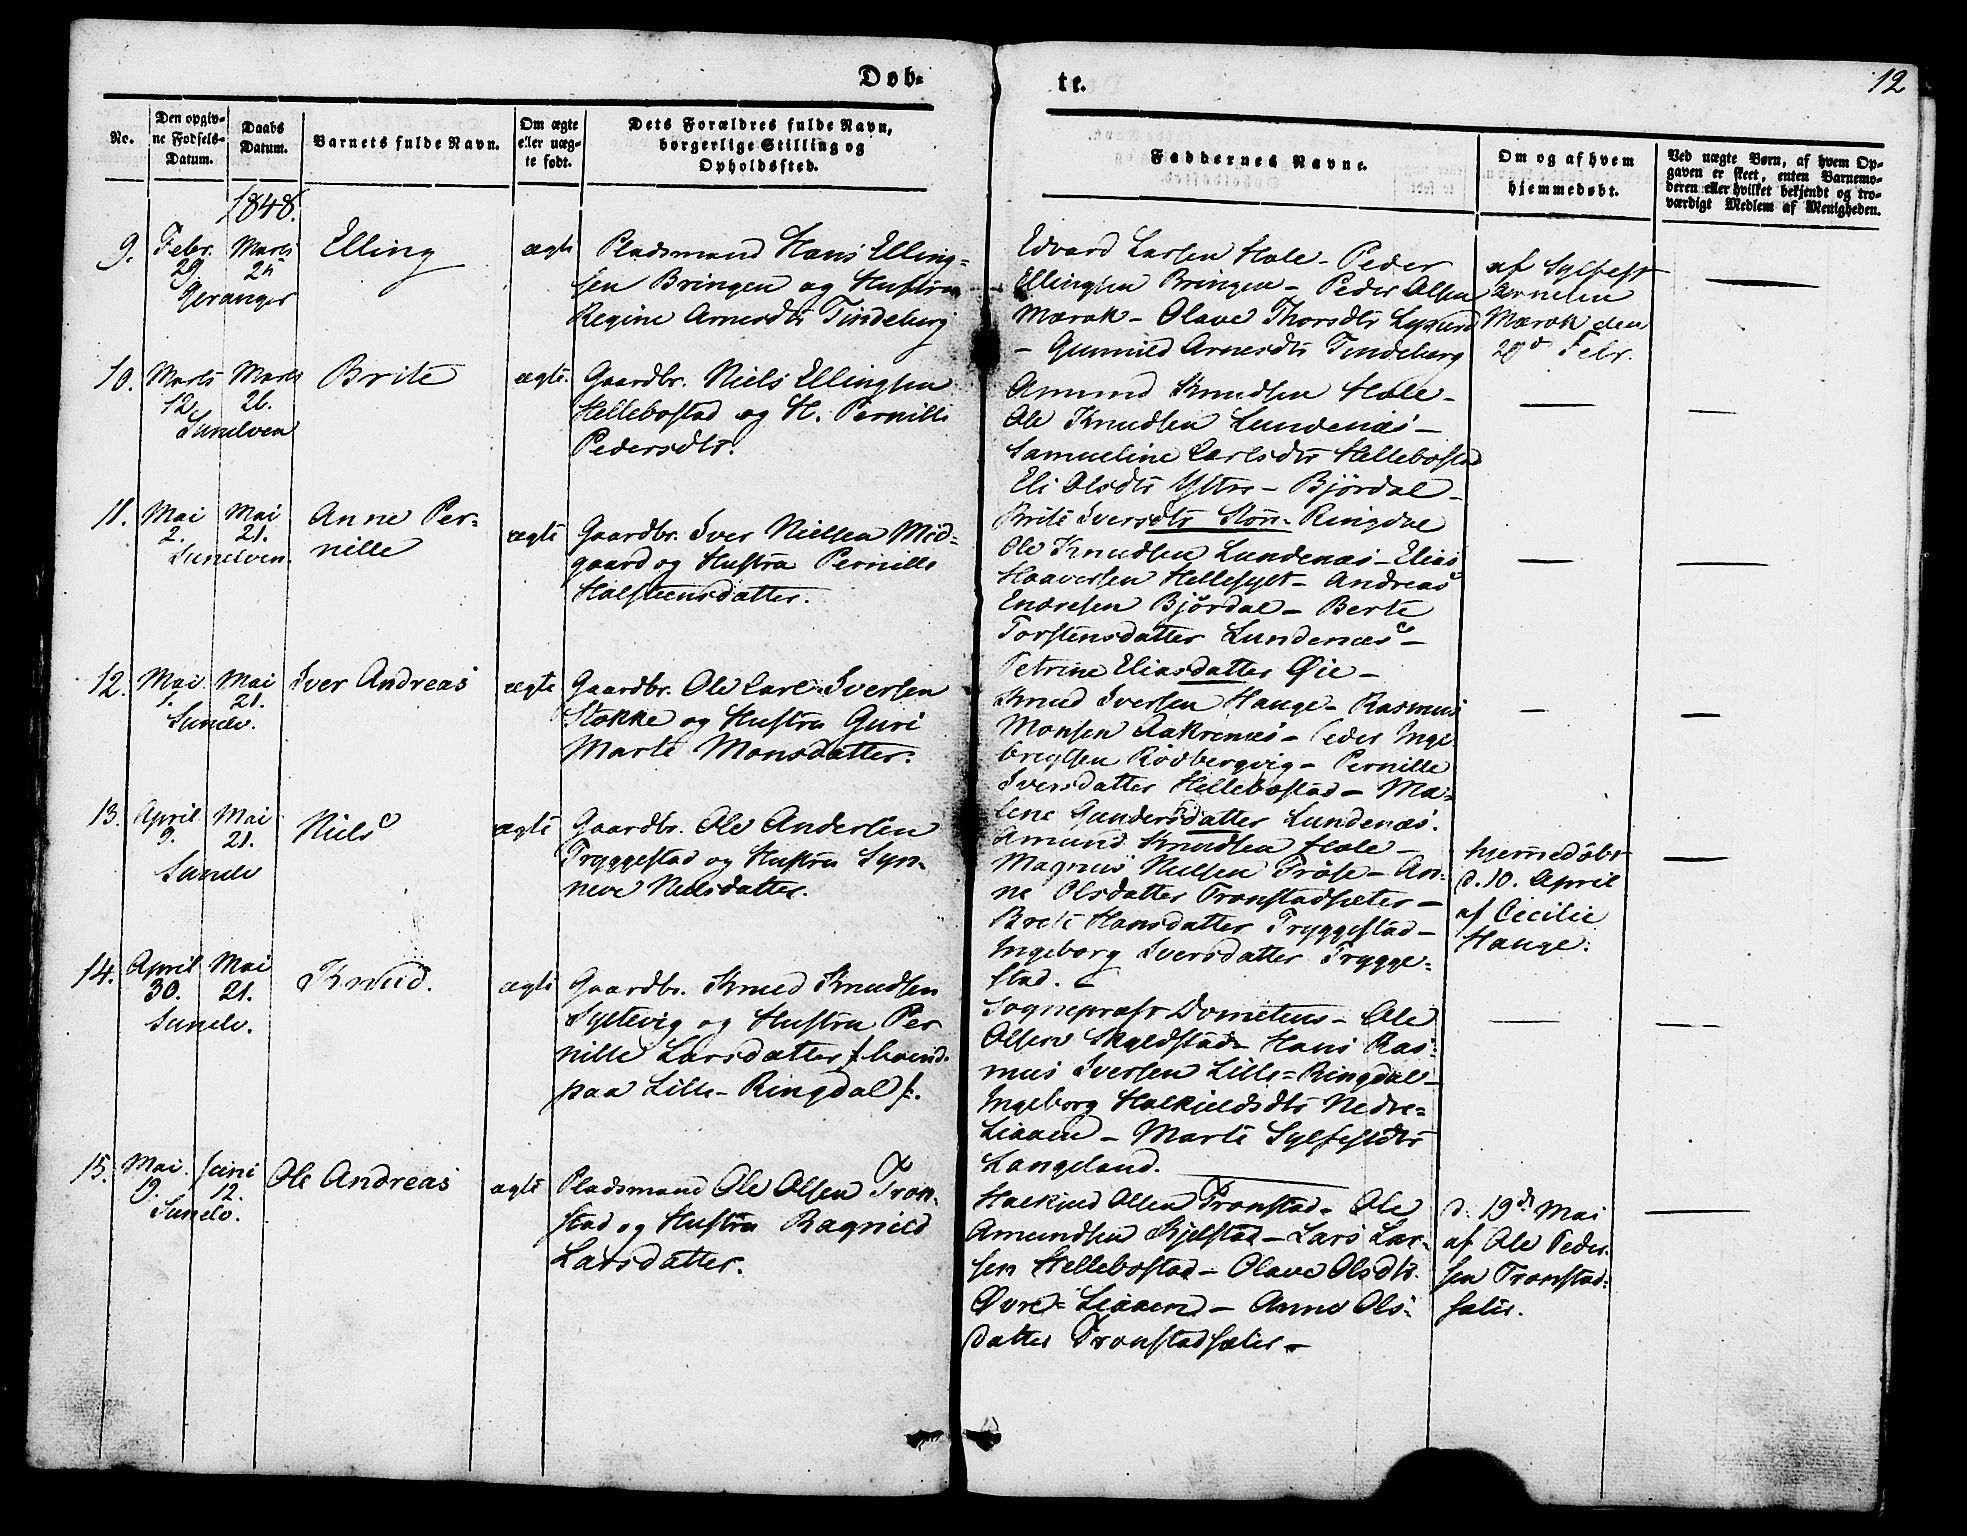 Døb-
te.
12
No.
Den opgiv-
ne Fødsels-
Datum.
Daabs
Datum.
Barnets fulde Navn.
Om ægte
eller uæg-
te født.
Dets Forældres fulde Navn,
borgerlige Stilling og
Opholdssted.
Faddernes Navne.
Om og af hvem
hjemmedøbt.
Ved uægte Børn, af hvem Op-
gaven er skeet, enten Barnemo-
deren eller hvilket bekjendt og tro-
værdigt Medlem af Menigheden.
1848.
9.
Febr.
29
Geranger
Marts
Elling
ægte
Pladsmand Hans Elling=
sen Bringen og Hustru
Regine Arnesdtr Tindeburg
Edvard Larsen Hole - Peder
Ellingsen Bringen - Peder Olsen
Marok - Olave Thorsdtr
- Gunnild Arnesdtr Tindeburg
af Sylfest
Arnesen
Marok den
29de Febr.
10.
Marts
12
Sunelven
Marts
26.
Brite
ægte.
Gaardbr. Niels Ellingsen
Hellebostad og H. Pernille
Pedersdtr.
Amund Knudsen Hole -
Ole Knudsen Lundenæs -
Samueline Carlsdtr Hellebostad
Eli Olsdtr Ytter - Bjørdal -
Brite Iversdtr Stor- Ringdal
11.
Mai
2.
Sunelven.
Mai
21.
Anne Per=
nille
ægte
Gaardbr. Iver Nielsen Mid=
gaard og Hustru Pernille
Halsteensdatter.
Ole Knudsen Lundenæs - Elias
Haaversen Hellesylt - Andreas
Endresen Bjørdal - Berte
Torstensdatter Lundenæs -
Petrine Eliasdatter Øie -
12.
Mai
Sunelv.
Mai
21.
Iver Andreas
ægte
Gaardbr. Ole Carl Iversen
Stokke og Hustru Guri
Marte Monsdatter.
Knud Iversen Hauge - Rasmus
Monsen Aakrenæs - Peder Inge
brigtsen Rødbergvig - Pernille
Iversdatter Hellebostad - Ma=
lene Gundersdatter Lundenæs.
13.
April
9.
Sunelv
Mai
21.
Niels
ægte
Gaardbr. Ole Andersen
Tryggestad og Hustru Syn=
neve Nielsdatter.
Amund Knudsen Hole -
Magnus Nielsen Frøse - An=
ne Olsdatter Tronstadsæter -
Brete Hansdatter Tryggestad -
Ingeborg Iversdatter Trygge=
stad.
hjemmedøbt
d. 10. April
af Cecilie
Hauge.
14.
April
30.
Sunelv.
Mai
21.
Knud.
ægte
Gaardbr. Knud Knudsen
Syltevig og Hustru Per
nille Larsdatter
paa Lille - Ringdal
Sognepræst Dometius - Ole
Olsen Skyldstad - Hans Ras=
mus Iversen Lille = Ringdal -
Ingeborg Halkjeldsdtr Nedre=
Liaaen - Marte Sylfestdtr
Langeland.
15.
Mai
9.
Sunelv.
Juni
12.
Ole Andreas
ægte
Pladsmand Ole Olsen Tron=
stad og Hustru Ragnild
Larsdatter.
Halkjeld Olsen Tronstad - Ole
Amundsen Kjelstad - Lars Lar=
sen Hellebostad - Olave Olsdtr.
Øvre= Liaaen - Anne Ols=
datter Tronstadsæter -
d. 19de Mai
af Ole Peder=
sen Tronstad=
sæter.